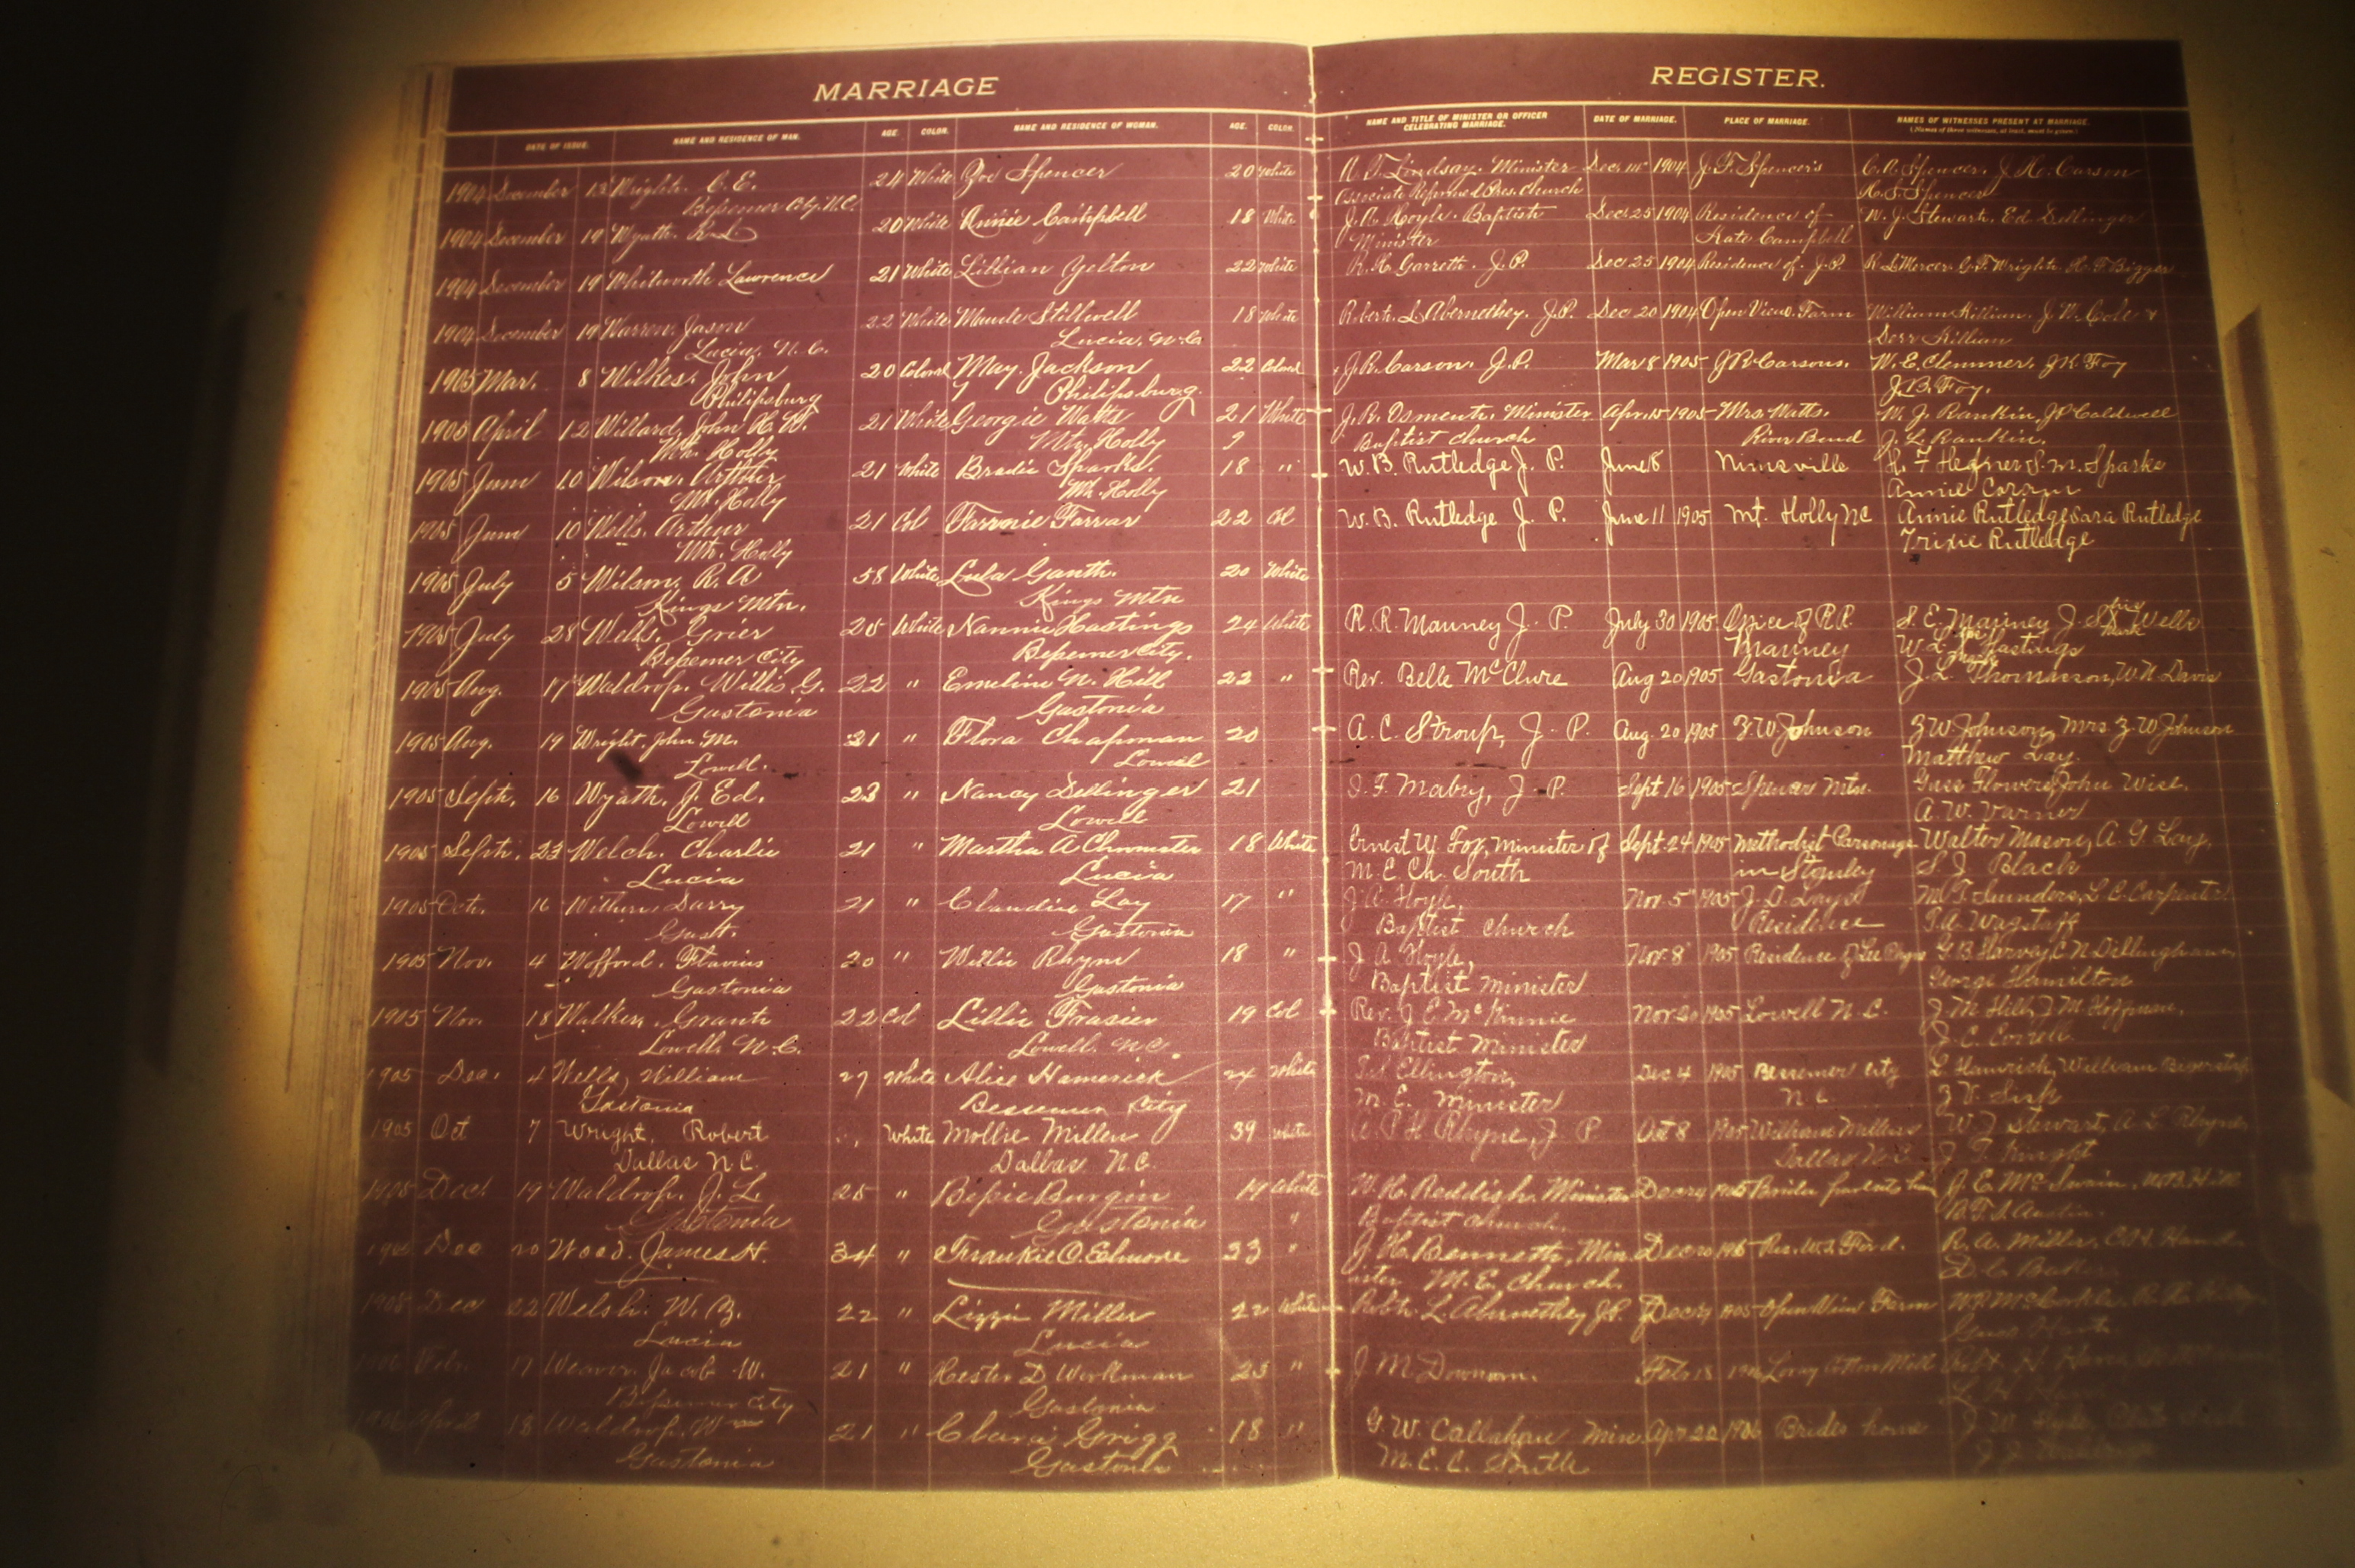 MARRIAGE
REGISTER.
DATE OF ISSUE. NAME AND RESIDENCE OF MAN. AGE. COLOR. NAME AND RESIDENCE OF WOMAN. AGE. COLOR. NAME AND TITLE OF MINISTER OR OFFICER DATE OF MARRIAGE. PLACE OF MARRIAGE. NAMES OF WITNESSES PRESENT AT MARRIAGE.
CELEBRATING MARRIAGE. (Names of three witnesses, at least, must be given.)
1904 December 13 Wright. C. E. 24 White Zoe Spencer 20 White Lindsay. Minister Dec. 1904 J. F. Spencer's C. A. Spencer, Carson
Bessemer City. N.C. Associate Reformed Pres. Church Spencer
1904 December 19 Wyatt. 20 White Annie Campbell 18 White J. A. Hoyle. Baptist Dec 25 1904 Residence of W. J. Stewart. Ed Dellinger
Minister Kate Campbell
1904 December 19 Whitworth Lawrence 21 White Lillian Yelton 22 White Garrett. J.P. Dec 25 1904 Residence of J.P. Mercer Wright. Bigger
1904 December 19 Warren. Jason 22 White Maude Stillwell 18 White Robert. L. Abernethy. J.P. Dec 20 1904 Open View Farm William Killian. J. W. Cole &
Lucia. N.C. Lucia, N.C. Killian
1905 Mar. 8 Wilkes. John 20 Colored May. Jackson 22 Colored J. R. Carson. J.P. Mar 8 1905 J R Carsons. W. E. Clemmer. J.K. Foy
Philipsburg Philipsburg. J. B. Foy.
1905 April 12 Willard, John H. W. 21 White Georgie Watts 21 White J. R. Osment. Minister Apr. 15 1905 Mrs. Watts. W. J. Rankin, J P Caldwell
Mt. Holly Mtn. Holly Baptist Church River Bend J. L. Rankin.
1905 June 10 Wilson. Arthur 21 White Bradie Sparks. 18 " W. B. Rutledge J. P. June 18 Nimsville S. M. Sparks
Mt. Holly Mt. Holly Annie
1905 June 10 Wells. Arthur 21 Col Fannie Farrar 22 Col W. B. Rutledge J. P. June 11 1905 Mt. Holly NC Annie Rutledge Sara Rutledge
Mt. Holly Trixie Rutledge
1905 July 5 Wilson, R. A 58 White Lula Gantt. 20 White
Kings Mtn. Kings Mtn
1905 July 28 Wells, Grier 25 White Nannie Hastings 24 White R. R. Mauney J. P. July 30 1905 Office of R.R. S. E. Mauney J. S. his mark Wells
Bessemer City Bessemer City. Mauney W. L. his mark Hastings
1905 Aug. 17 Waldrop. Willis G. 22 " Emeline N. Hill 22 " Rev. Belle McClure Aug 20 1905 Gastonia J. L. Thomasson, W. N. Davis
Gastonia Gastonia
1905 Aug. 19 Wright, John M. 21 " Flora Chapman 20 A. C. Stroup, J. P. Aug. 20 1905 Z. W Johnson Z W Johnson, Mrs. Z. W Johnson
Lowell. Lowell Matthew Lay.
1905 Sept. 16 Wyatt. J. Ed. 23 " Nancy Dellinger 21 I. F. Mabry, J. P. Sept 16 1905 Spencer Mtn. Guss Flowers John Wise.
Lowell Lowell A. W. Varner
1905 Sept. 23 Welch. Charlie 21 " Martha A 18 White Ernest W Fox, Minister of Sept. 24 1905 Methodist Parsonage Walter Mason, A. G. Lay,
Lucia Lucia M. E. Ch. South in Stanley S. J. Black
1905 Oct. 16 21 " Claudia Lay 17 " J. A. Hoyle, Nov. 5 1905 J. D. Lays Saunders, L. C. Carpenter
Gast. Gastonia Baptist Church Residence Wagstaff
1905 Nov. 4 Wofford. Flavius 20 " Willie Rhyne 18 " J. A. Hoyle, Nov. 8 1905 Residence of Lee Rhyne G. B. Harvey, C. N Dillingham
Gastonia Gastonia Baptist Minister George Hamilton
1905 Nov. 18 Walker. Grant 22 Col Lillie Frasier 19 Col Rev. J. E. McKinnie Nov 20 1905 Lowell N.C. J. M. Hill, J. M. Hoffman,
Lowell. N.C. Lowell. N.C. Baptist Minister J. C.
1905 Dec. 4 Wells, William 27 White Alice Hamrick 24 White Ellington, Dec 4 1905 Bessemer City Hamrick, William
Gastonia Bessemer City M. E. Minister N C. Sisk
1905 Oct 7 Wright, Robert White Mollie Miller 39 White A. P. H Rhyne, J. P. Oct 8 1905 William Millers W J Stewart, A. L. Rhyne,
Dallas N.C. Dallas. N.C. Dallas N.C. J. F. Wright
1905 Dec. 19 Waldrop. J. L. 25 " Bessie Burgin 19 White W. H. Reddish. Minister Dec 24 1905 J. E. McSwain.
Gastonia Gastonia Baptist Church. Austin.
Dec 20 Wood. James H. 34 " Frankie C. Elmore 33 " J. H. Bennett, Min- Dec 20 1905 Res. W. T. Ford. R. A. Miller.
ister M. E. Church.
1905 Dec 22 Welsh. W. Z. 22 " Lizzie Miller 22 White Robt. L. Abernethy J.P. Dec 24 1905 Open View Farm
Lucia Lucia
Feb. 17 Weaver. Jacob W. 21 " Hester D. Workman 25 " J M Downum. Feb 18 1906 Loray Cotton Mill
Bessemer City Gastonia
April 18 Waldrop. Wm 21 " Clara Grigg 18 " G. W. Callahan Min. Apr 22 1906 Brides home
Gastonia Gastonia M. E. C. South